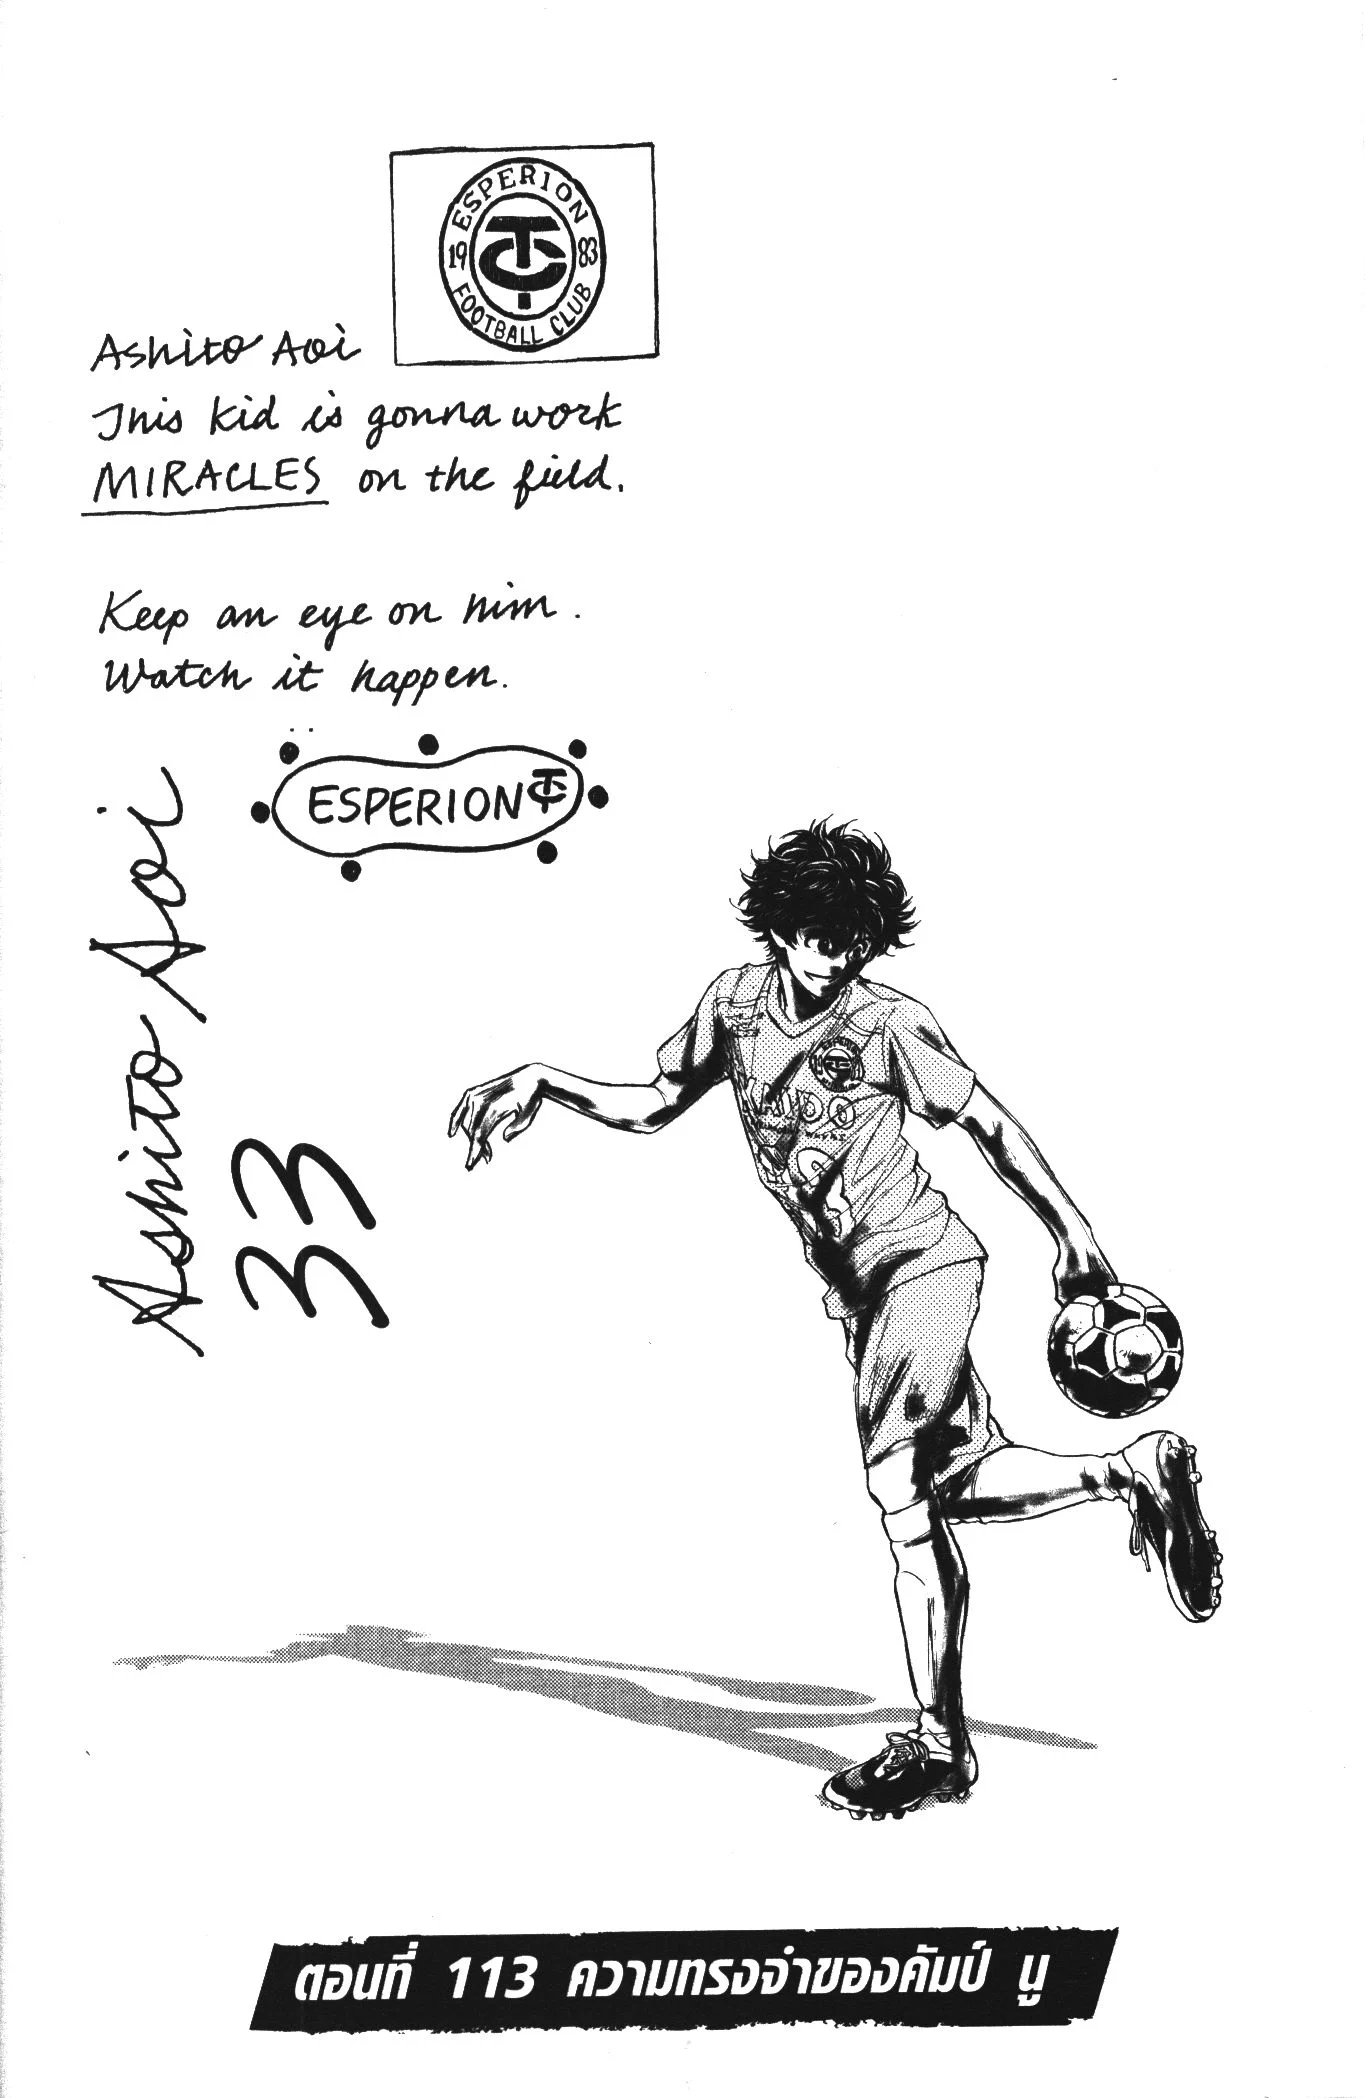 ESPERION
19 83
FOOTBALL CLUB
TC
Ashito Aoi
This kid is gonna work
MIRACLES on the field.
Keep an eye on him.
Watch it happen.
ESPERION TC
Ashito Aoi
33
ตอนที่ 113 ความทรงจำของคัมป์ นู